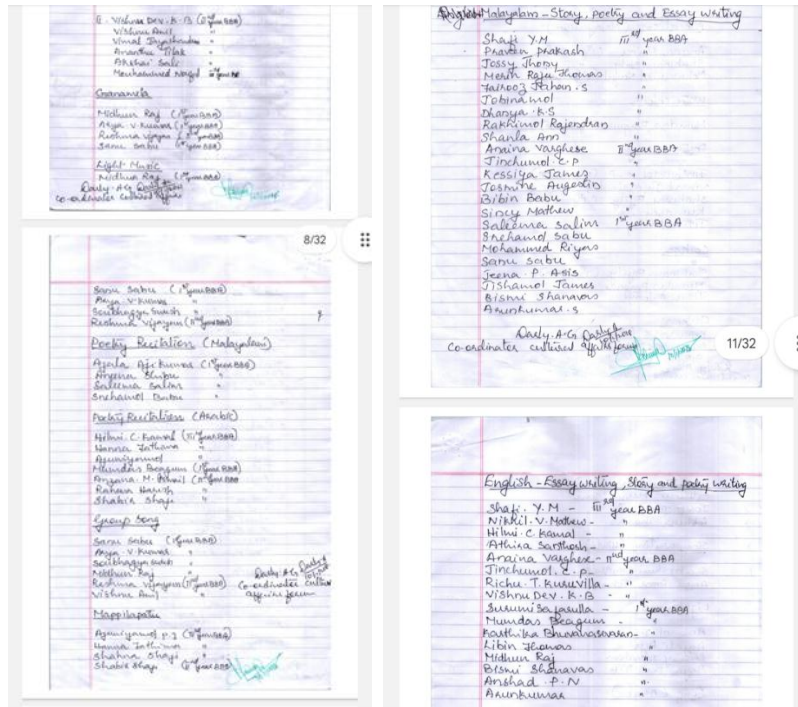 Vishnu Dev. K. B (IInd year BBA)
Vishnu Anil "
Vimal Jayachandran "
Anantha Tilak "
Akshai Sali "
Mouhammed
Ganamela
Midhun Raj (1st year BBA)
Arya. V. Kumar (1st year BBA)
Reshma Vijayan
Sanu Sabu (1st year BBA)
Light Music
Midhun Raj (1st year BBA)
Darly. A.G
Co-ordinates cultural affairs
8/32
Sanu Sabu (1st year BBA)
Arya. V. Kumar "
Soubhagya Suresh "
Reshma Vijayan (IInd year BBA)
Poetry Recitation (Malayalam)
Ajala Aji Kumar (1st year BBA)
Anjana Shibu "
Saleema Salim "
Snehamol Babu "
Poetry Recitation (Arabic)
Hilmi. C. Kamal (IIIrd year BBA)
Hanna Fathima "
Ajmiyamol "
Mumdas Beagum (1st year BBA)
Anjana. M. (IInd year BBA
Raheena Harish "
Shabia Shaji "
Group Song
Sanu Sabu (1st year BBA)
Arya. V. Kumar "
Soubhagya Suresh "
Midhun Raj "
Reshma Vijayan (IInd year BBA)
Vishnu Anil "
Darly. A.G
Co-ordinates cultural
affairs forum
Mappilapattu
Ajmiyamol P.J (IIIrd year BBA)
Hanna Fathima "
Shahna Shaji "
Shabia Shaji (IInd year BBA)
Malayalam - Story, poetry and Essay writing
Shafi Y.M IIIrd year BBA
Praveen Prakash "
Jossy Jhony "
Merin Raju Thomas "
Fairooz Jahan. S "
Jobinamol "
Dhanya. K.S "
Rakhimol Rajendran "
Shanla Ann "
Anaina Varghese IInd year BBA
Jinchumol C.P "
Kessiya James "
Jasmine Augestin "
Bibin Babu "
Sincy Mathew "
Saleema Salim 1st year BBA
Snehamol Sabu
Mohammed Riyas
Sanu Sabu
Jeena. P. Asis
Jishamol James
Bismi Shanavas
Arunkumar. S
Darly. A.G
Co-ordinates cultural affairs forum
11/32
English - Essay writing, Story and poetry writing
Shafi. Y.M - IIIrd year BBA
Nikhil. V. Mathew - "
Hilmi. C. Kamal - "
Athira Santhosh - "
Anaina Varghese - IInd year BBA
Jinchumol. C. P - "
Richu. T. Kuruvilla - "
Vishnu Dev. K. B - "
Surumi Safarulla - 1st year BBA
Mumdas Beagum - "
Karthika Bhuvanaswaran - "
Libin Thomas "
Midhun Raj "
Bismi Shanavas "
Anshad. P. N "
Arunkumar "